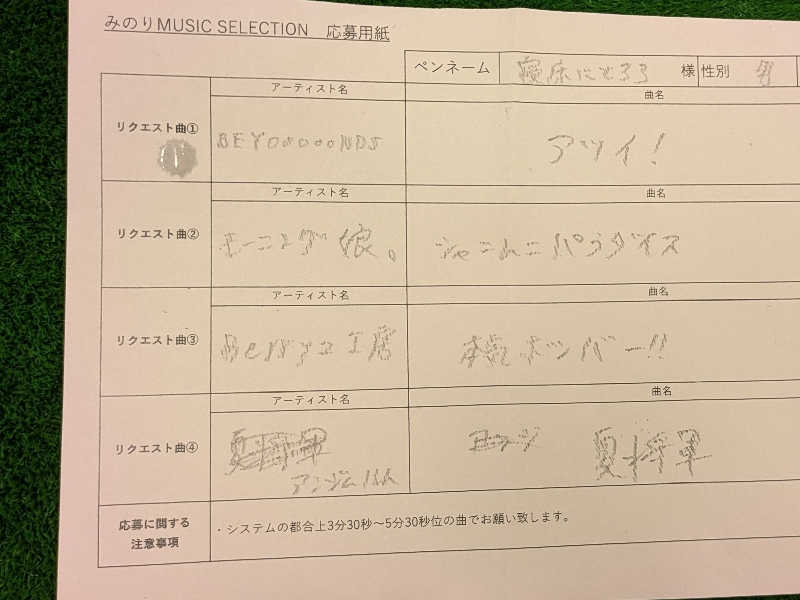 みのりMUSIC SELECTION 応募用紙
ペンネーム 寝床にとろろ 様 性別 男
アーティスト名 曲名
リクエスト曲① BEYOOOOONDS アツイ!
アーティスト名 曲名
リクエスト曲② モーニング娘。 シャニムニパラダイス
アーティスト名 曲名
リクエスト曲③ Berryz工房 本気ボンバー!!
アーティスト名 曲名
リクエスト曲④ 夏将軍 夏将軍
アンジュルム
応募に関する
注意事項
・システムの都合上3分30秒～5分30秒位の曲でお願い致します。